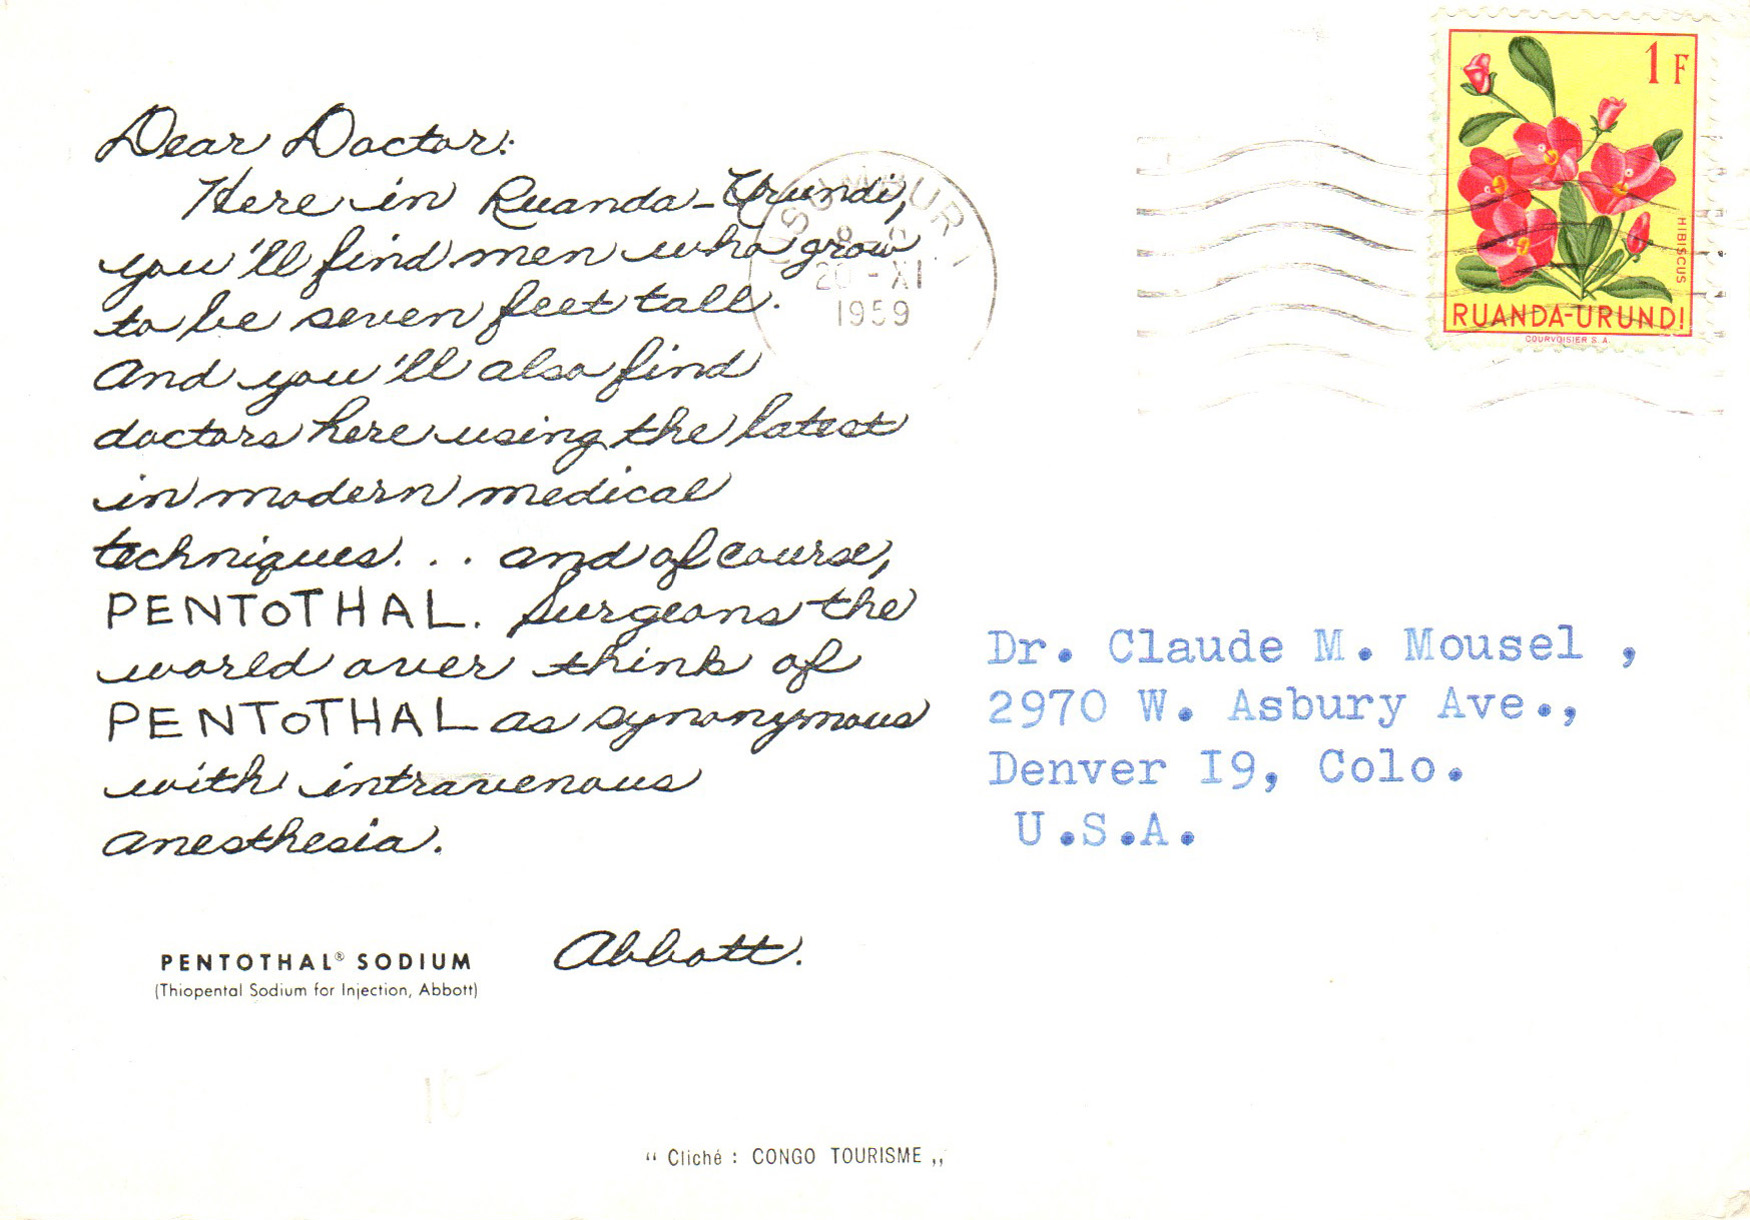 Dear Doctor:
Here in Ruanda-Urundi,
you'll find men who grow
to be seven feet tall.
And you'll also find
doctors here using the latest
in modern medical
techniques... and of course,
PENTOTHAL. Surgeons the
world over think of
PENTOTHAL as synonymous
with intravenous
anesthesia.
Abbott.
PENTOTHAL® SODIUM
(Thiopental Sodium for Injection, Abbott)
USUMBURA
20-XI
1959
1 F
HIBISCUS
RUANDA-URUNDI
COURVOISIER S.A.
Dr. Claude M. Mousel ,
2970 W. Asbury Ave.,
Denver I9, Colo.
U.S.A.
“ Cliché : CONGO TOURISME „